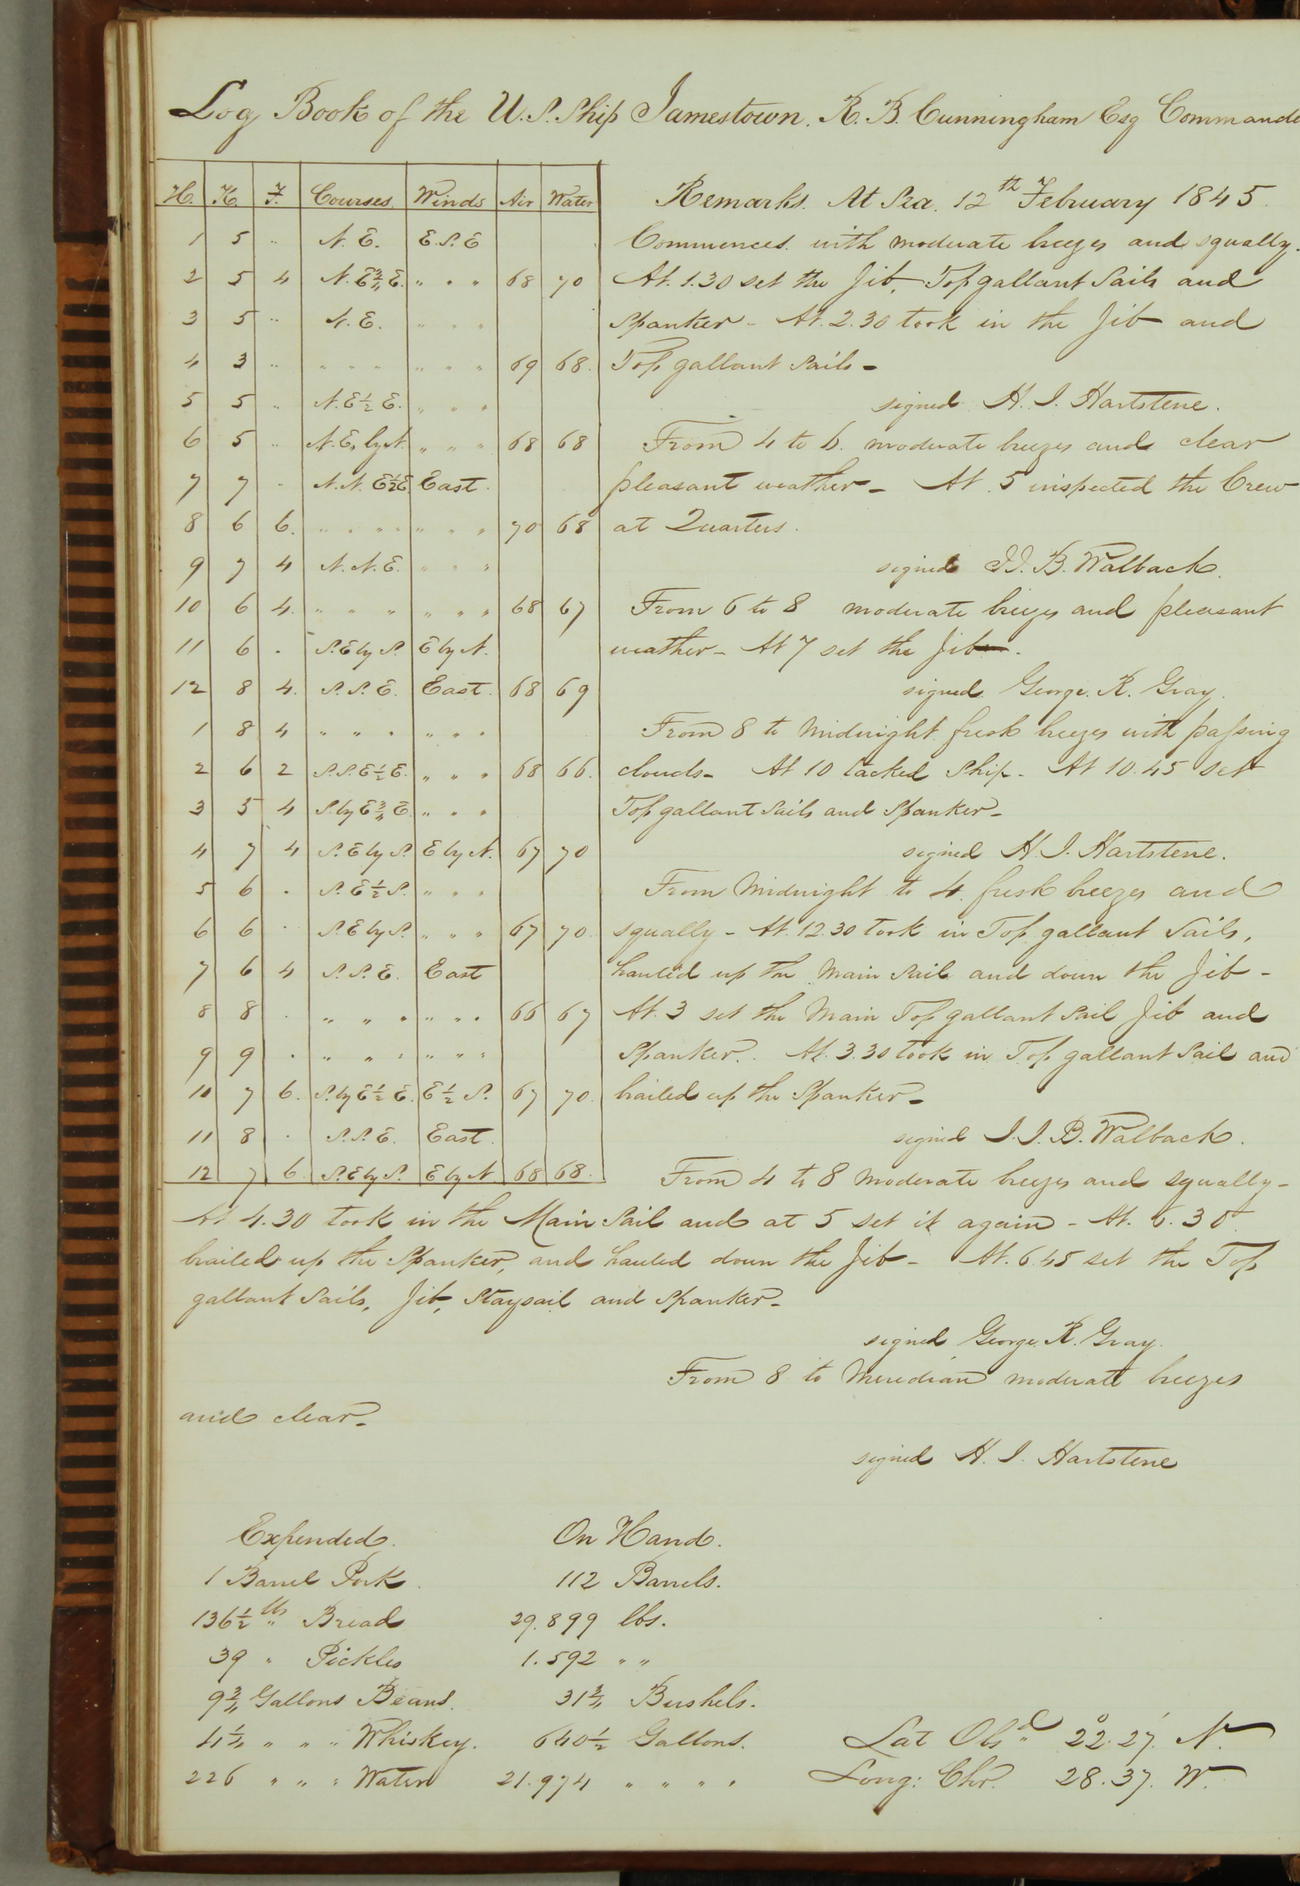 Log Book of the U.S. Ship Jamestown. R. B. Cunningham Esq Commande
H. K. F. Courses. Winds Air Water Remarks. At Sea. 12th February 1845.
1 5 .. N. E. E.S.E Commences with moderate breezes and squally.
2 5 4 N.E¾E. " " " 68 70 At 1.30 set the Jib, Top gallant Sails and
3 5 .. N.E. " " " Spanker - At 2.30 took in the Jib and
4 3 .. " " " " " " " 69 68. Top gallant Sails -
5 5 .. N.E½E. " " " signed H. J. Hartstene.
6 5 .. N.E. by N. " " " 68 68 From 4 to 6. moderate breezes and clear
7 7 . N.N.E½E East. pleasant weather - At 5 inspected the Crew
8 6 6. " " " " " " " 70 68 at Quarters.
9 7 4 N.N.E. " " " signed J.J.B. Walback.
10 6 4. " " " " " " 68 67 From 6 to 8 moderate breezes and pleasant
11 6 . S.E by S. E by N. weather - At 7 set the Jib.
12 8 4. S.S.E. East. 68 69 signed George. R. Gray.
1 8 4 " " " " " " From 8 to Midnight fresh breezes with passing
2 6 2 S.S.E½E. " " " 68 66. clouds - At 10 tacked Ship - At 10.45 set
3 5 4 S. by E¾E. " " " Top gallant Sails and Spanker -
4 7 4 S.E by S. E by N. 67 70 signed H. J. Hartstene.
5 6 . S.E½S. " " " From Midnight to 4. fresh breezes and
6 6 . S.E by S. " " " 67 70. squally - At 12.30 took in Top gallant Sails,
7 6 4 S.S.E. East hauled up the Main Sail and down the Jib -
8 8 . " " " " " " 66 67 At 3 set the Main Top gallant Sail Jib and
9 9 . " " " " " " Spanker. At 3.30 took in Top gallant Sail and
10 7 6. S. by E½E. E½S. 67 70. brailed up the Spanker -
11 8 . S.S.E. East. signed J.J.B. Walback.
12 7 6 S.E by S. E by N 68 68. From 4 to 8 moderate breezes and squally -
At 4.30 took in the Main Sail and at 5 set it again - At 6.30
brailed up the Spanker, and hauled down the Jib - At 6.45 set the Top
gallant Sails, Jib, Staysail and Spanker -
signed George. R. Gray.
From 8 to Meridian moderate breezes
and clear -
signed H. J. Hartstene
Expended. On Hand.
1 Barrel Pork. 112 Barrels.
136½ lbs Bread 29.899 lbs.
39 " Pickles 1.592 " "
9¾ Gallons Beans. 31¾ Bushels.
4¼ " " " Whiskey. 640½ Gallons. Lat Obsd 22°.27'. N.
226 " " " Water 21.974 " " " " Long: Chr. 28.37. W.